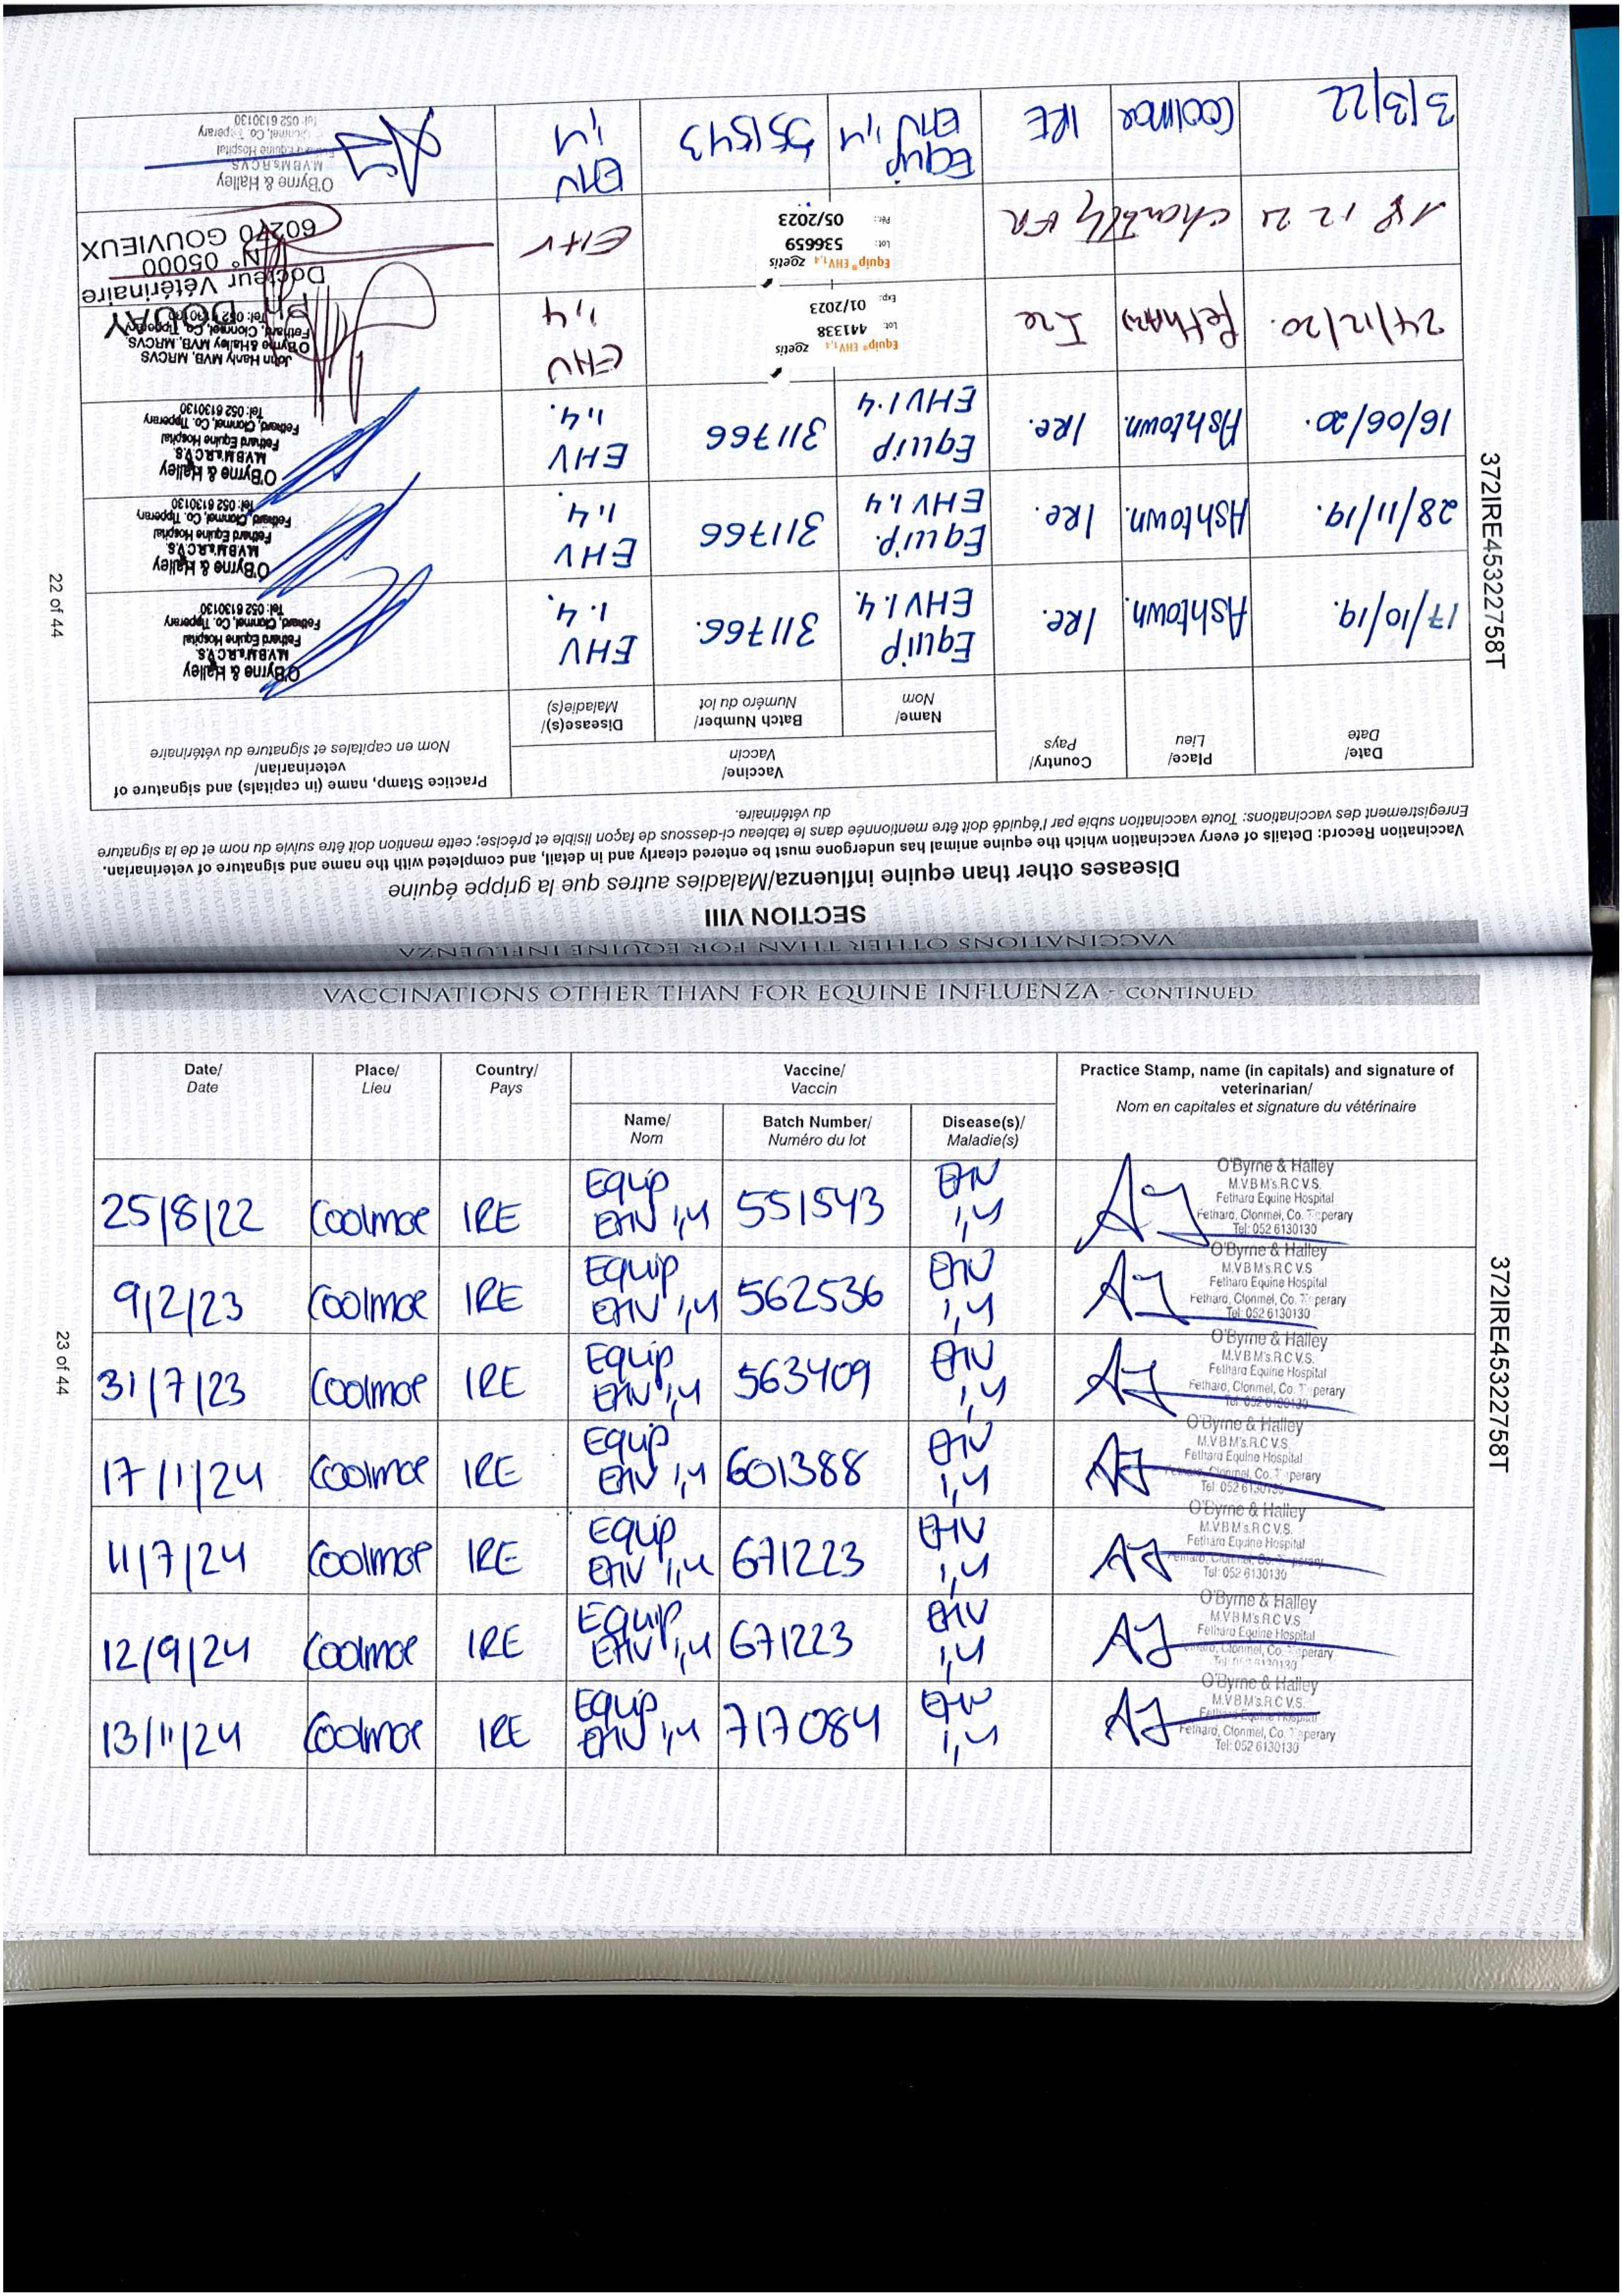 22 of 44
372IRE45322758T
VACCINATIONS OTHER THAN FOR EQUINE INFLUENZA
SECTION VIII
Diseases other than equine influenza/Maladies autres que la grippe équine
Vaccination Record: Details of every vaccination which the equine animal has undergone must be entered clearly and in detail, and completed with the name and signature of veterinarian.
Enregistrement des vaccinations: Toute vaccination subie par l'équidé doit être mentionnée dans le tableau ci-dessous de façon lisible et précise; cette mention doit être suivie du nom et de la signature
du vétérinaire.
Date/ Place/ Country/ Vaccine/ Practice Stamp, name (in capitals) and signature of
Date Lieu Pays Vaccin veterinarian/
Nom en capitales et signature du vétérinaire
Name/ Batch Number/ Disease(s)/
Nom Numéro du lot Maladie(s)
17/10/19. Ashtown. IRe. Equip EHV 1.4. 311766. EHV 1.4.
O'Byrne & Halley
M.V.B M.s R.C.V.S.
Fethard Equine Hospital
Fethard, Clonmel, Co. Tipperary
Tel: 052 6130130
28/11/19. Ashtown. IRe. Equip. EHV 1.4 311766 EHV 1,4.
O'Byrne & Halley
M.V.B M.s R.C.V.S.
Fethard Equine Hospital
Fethard, Clonmel, Co. Tipperary
Tel: 052 6130130
16/06/20. Ashtown. IRe. Equip EHV 1.4 311766 EHV 1,4.
O'Byrne & Halley
M.V.B M.s R.C.V.S.
Fethard Equine Hospital
Fethard, Clonmel, Co. Tipperary
Tel: 052 6130130
24/12/20. Fethard Ire
Equip® EHV1,4 zoetis
Lot: 441338
Exp: 01/2023
EHV 1,4
John Hanly MVB, MRCVS
O'Byrne & Halley MVB, MRCVS
Fethard, Clonmel, Co. Tipperary
Tel: 052 6130130
18 12 21 Chantilly FR
Equip® EHV1,4 zoetis
Lot: 536659
Pér.: 05/2023
EHV
Ph DOUAY
Docteur Vétérinaire
N° 05000
60270 GOUVIEUX
3/3/22 Coolmore IRE Equip EHV 1,4 551543 EHV 1,4
O'Byrne & Halley
M.V.B M.s R.C.V.S
Fethard Equine Hospital
Clonmel, Co. Tipperary
Tel: 052 6130130
VACCINATIONS OTHER THAN FOR EQUINE INFLUENZA - CONTINUED
Date/ Place/ Country/ Vaccine/ Practice Stamp, name (in capitals) and signature of
Date Lieu Pays Vaccin veterinarian/
Nom en capitales et signature du vétérinaire
Name/ Batch Number/ Disease(s)/
Nom Numéro du lot Maladie(s)
25/8/22 Coolmore IRE Equip EHV 1,4 551543 EHV 1,4
O'Byrne & Halley
M.V.B M's.R.C.V.S.
Fethard Equine Hospital
Fethard, Clonmel, Co. Tipperary
Tel: 052 6130130
9/2/23 Coolmore IRE Equip EHV 1,4 562536 EHV 1,4
O'Byrne & Halley
M.V.B M's.R.C.V.S
Fethard Equine Hospital
Fethard, Clonmel, Co. Tipperary
Tel: 052 6130130
31/7/23 Coolmore IRE Equip EHV 1,4 563409 EHV 1,4
O'Byrne & Halley
M.V.B M's.R.C.V.S.
Fethard Equine Hospital
Fethard, Clonmel, Co. Tipperary
Tel: 052 6130130
17/1/24 Coolmore IRE Equip EHV 1,4 601388 EHV 1,4
O'Byrne & Halley
M.V.B M's.R.C.V.S.
Fethard Equine Hospital
Fethard, Clonmel, Co. Tipperary
Tel: 052 6130130
11/7/24 Coolmore IRE Equip EHV 1,4 671223 EHV 1,4
O'Byrne & Halley
M.V.B M's.R.C.V.S.
Fethard Equine Hospital
Fethard, Clonmel, Co. Tipperary
Tel: 052 6130130
12/9/24 Coolmore IRE Equip EHV 1,4 671223 EHV 1,4
O'Byrne & Halley
M.V.B M's.R.C.V.S.
Fethard Equine Hospital
Fethard, Clonmel, Co. Tipperary
Tel: 052 6130130
13/11/24 Coolmore IRE Equip EHV 1,4 717084 EHV 1,4
O'Byrne & Halley
M.V.B M's.R.C.V.S.
Fethard Equine Hospital
Fethard, Clonmel, Co. Tipperary
Tel: 052 6130130
23 of 44
372IRE45322758T